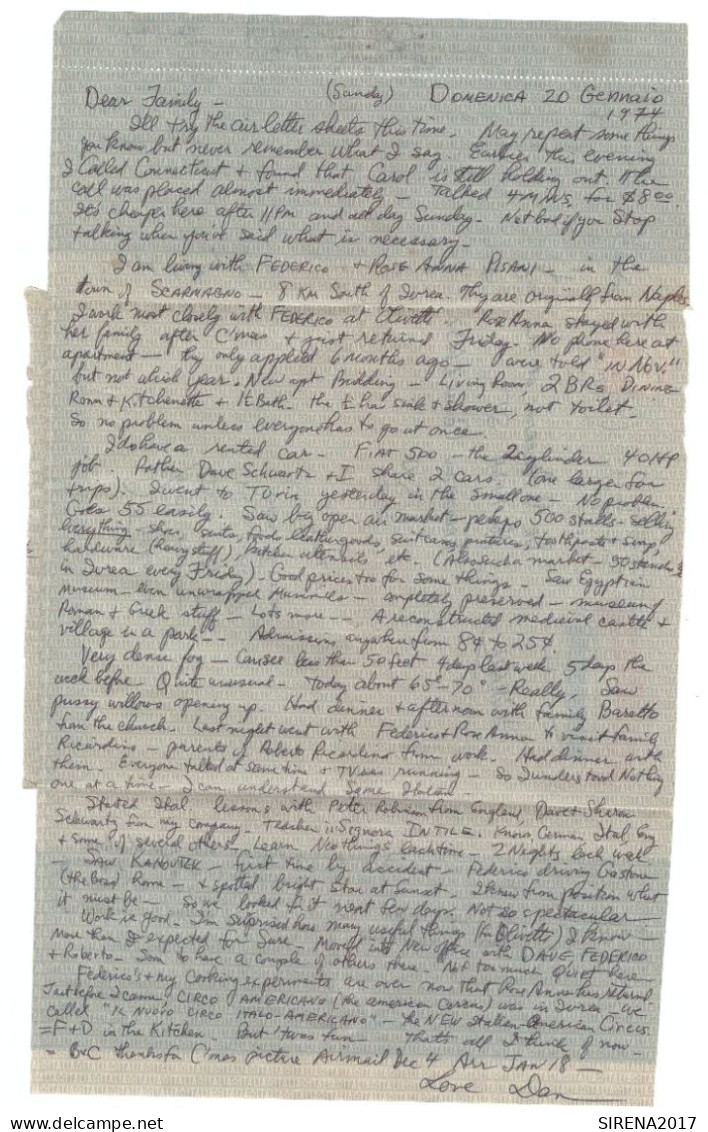 Dear Family - (Sunday) DOMENICA 20 Gennaio
1974
I'll try the air letter sheets this time. May repeat some things
you know but never remember what I say. Earlier this evening
I Called Connecticut & found that Carol is still holding out. The
call was placed almost immediately - Talked 4 MINS, for $8.00.
It's cheaper here after 11 PM and all day Sunday - Not bad if you Stop
talking when you've said what is necessary -
I am living with FEDERICO + ROSE ANNA PISANI - in the
town of SCARMAGNO - 8 KM South of Ivrea. They are originally from Naples
I work most closely with FEDERICO at Olivetti - Rose Anna stayed with
her family after C'mas & just returned Friday. No phone here at
apartment - they only applied 6 months ago - were told "IN NOV."
but not which year. New apt Building - Living Room, 2 BRs DINING
Room & Kitchenette + 1½ Bath. the ½ has sink & shower, not toilet -
So no problem unless everyone has to go at once.
I do have a rented car - FIAT 500 - the 2 cylinder 40 HP
job. Rather Dave Schwartz + I share 2 cars. (one larger for
trips). I went to Turin yesterday in the small one - No problem
Goes 55 easily. Saw big open air market - perhaps 500 stalls - selling
everything - shoes, suits, food, leathergoods, suitcases, pictures, toothpaste & soap,
hardware (heavy stuff), kitchen utensils etc. (Also such a market - 50 stands
in Ivrea every Friday). Good prices too for some things - Saw Egyptian
Museum - even unwrapped Mummies - completely preserved - museum of
Roman & Greek stuff - Lots more -- A reconstructed medieval castle &
village in a park -- Admissions anywhere from 8¢ to 25¢.
Very dense fog - Can see less than 50 feet 4 days last week 5 days the
week before. Quite unusual - Today about 65°-70° - Really, Saw
pussy willows opening up. Had dinner & afternoon with family Baretto
from the church. Last night went with Federico & Rose Anna to visit family
Ricardino - parents of Roberto Ricardino from work. Had dinner with
them. Everyone talked at same time & TV was running - So I understood Nothing
one at a time - I can understand Some Italian -
Started Ital lessons with Peter from England, Dave & Sharon
Schwartz from my company. Teacher is Signora INTILE. Knows German Ital, Eng
& some of several others. Learn New things each time - 2 Nights each week
- SAW KAHOUTEK - first time by accident - Federico driving
(the Road Home - & spotted bright Star at sunset. I knew from position what
it must be - So we looked for it next few days. Not so spectacular -
Work is good - I'm surprised how many useful things (for Olivetti) I know -
More than I expected for sure - Moved into New office with DAVE, FEDERICO
& Roberto - Soon to have a couple of others there - Not too much Quiet here -
Federico's & my cooking experiments are over now that Rose Anna has returned
Just before I came CIRCO AMERICANO (the american Circus) was in Ivrea - we
called "IL NUOVO CIRCO ITALO-AMERICANO" - the NEW Italian-American Circus
= F + D in the Kitchen. But 'twas fun - that's all I think of now -
= B+C thanks for C'mas picture Airmail Dec 4 Arr JAN 18 -
Love Dan
SIRENA2017